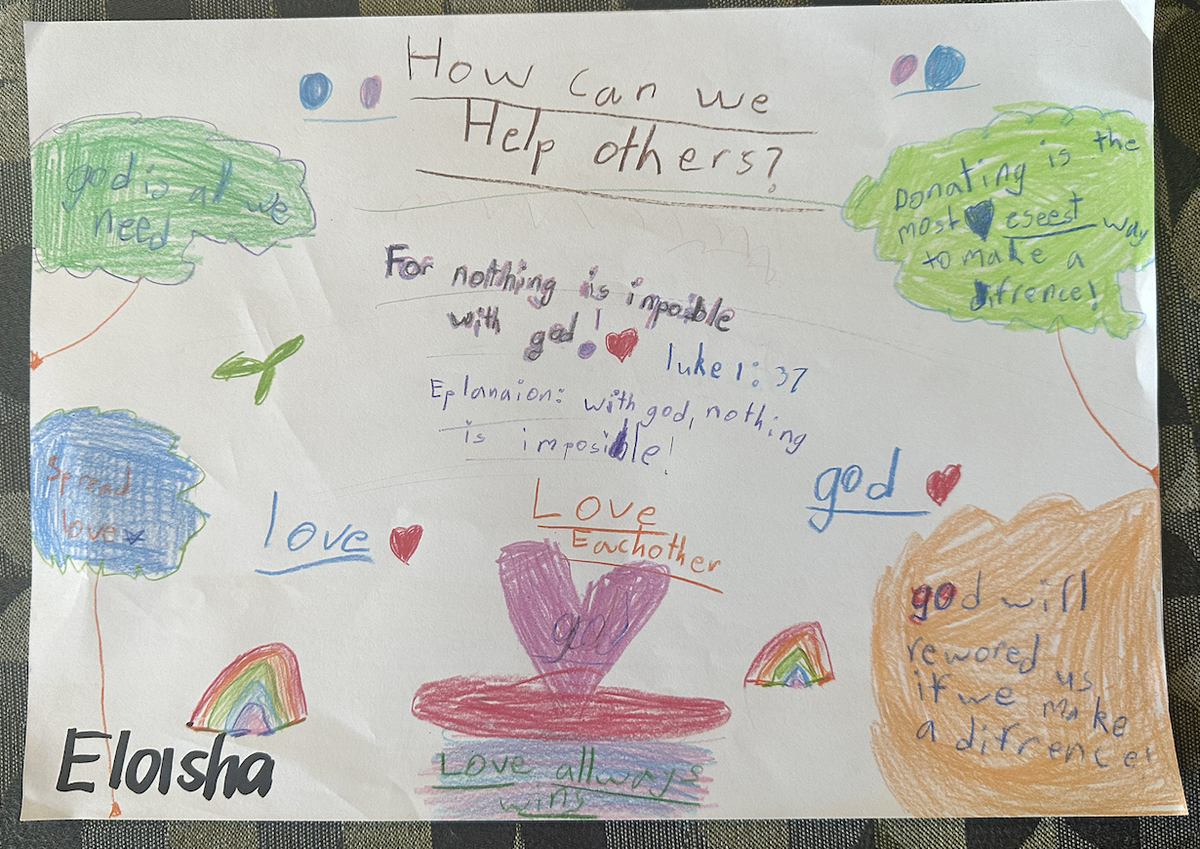 How can we
Help others?
god is all we
need
Donating is the
most eseest way
to make a
difrence!
For nothing is imposible
with god!
luke 1:37
Eplanaion: with god, nothing
is imposible!
Spread
love
love
god
Love
Eachother
god
god will
rewored us
if we make
a difrence!
Love allways
wins
Eloisha